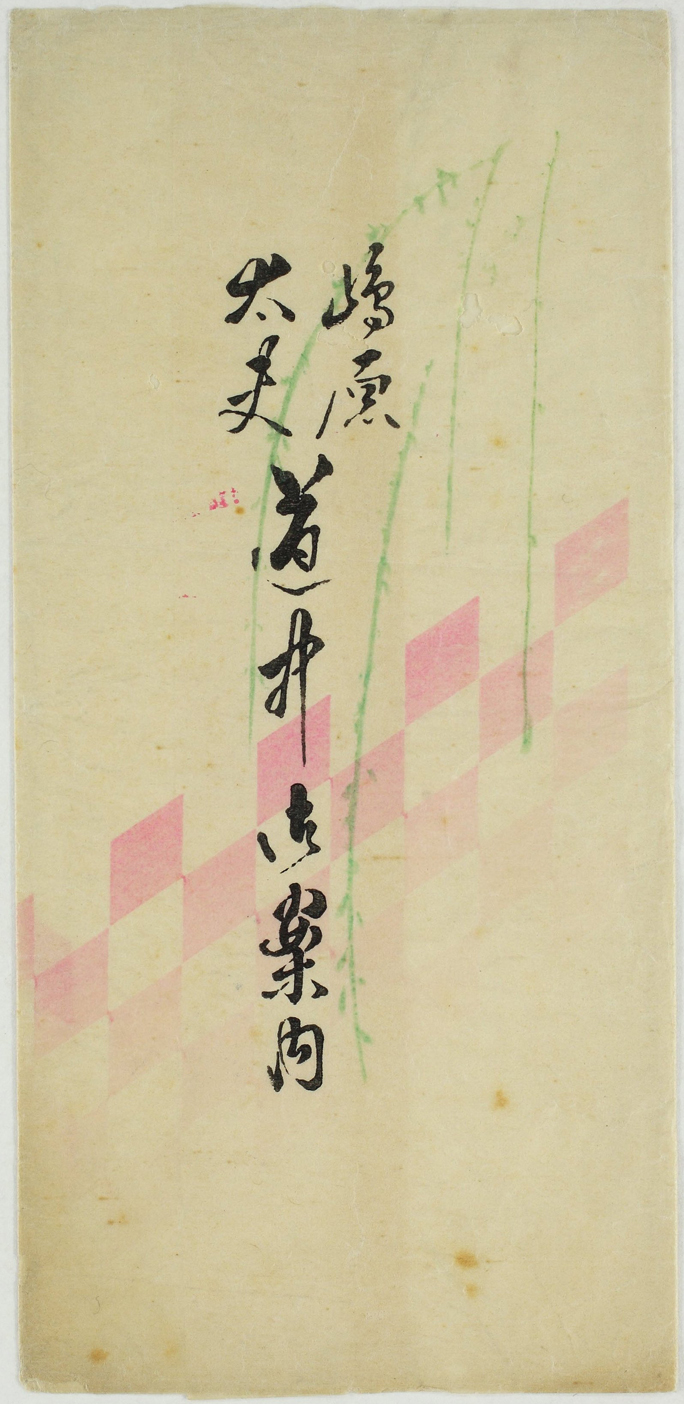 嶋原
太夫
道中御案内